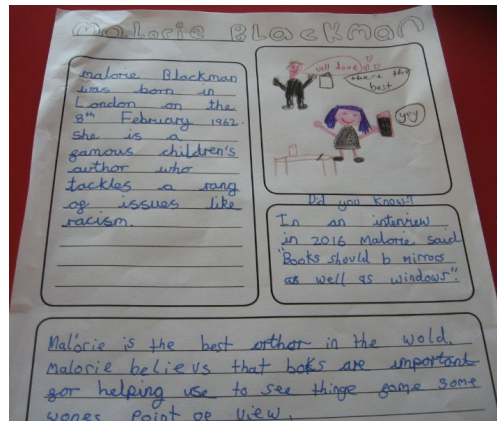 Malorie Blackman
malorie Blackman
was born in
London on the
8th February 1962.
she is a
famous children's
author who
tackles a rang
of issues like
racism.
well done
there the
best
yey
Did you know?!
In an interview
in 2016 Malorie said
"Books should b mirrors
as well as windows".
Malorie is the best orthor in the wold.
Malorie believs that books are important
for helping use to see things fome some
wones point of view.